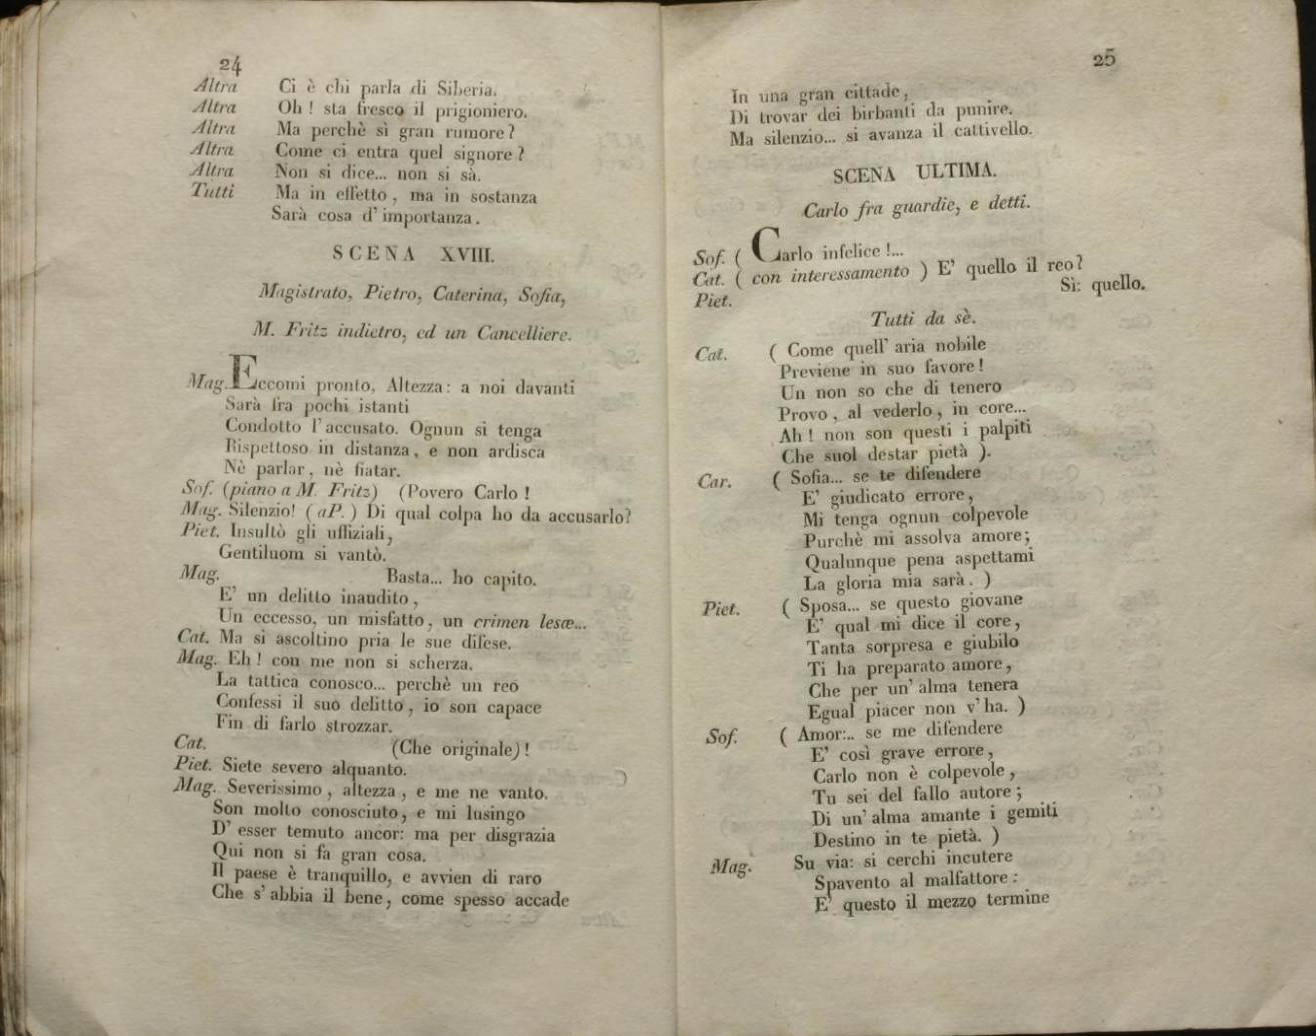 24
Altra Ci è chi parla di Siberia.
Altra Oh ! sta fresco il prigioniero.
Altra Ma perchè sì gran rumore ?
Altra Come ci entra quel signore ?
Altra Non si dice... non si sà.
Tutti Ma in effetto , ma in sostanza
Sarà cosa d' importanza .
SCENA XVIII.
Magistrato, Pietro, Caterina, Sofia,
M. Fritz indietro, ed un Cancelliere.
Mag. Eccomi pronto, Altezza : a noi davanti
Sarà fra pochi istanti
Condotto l'accusato. Ognun si tenga
Rispettoso in distanza , e non ardisca
Nè parlar , nè fiatar.
Sof. (piano a M. Fritz) (Povero Carlo !
Mag. Silenzio! ( aP. ) Di qual colpa ho da accusarlo?
Piet. Insultò gli uffiziali,
Gentiluom si vantò.
Mag. Basta... ho capito.
E' un delitto inaudito ,
Un eccesso, un misfatto, un crimen lesæ...
Cat. Ma si ascoltino pria le sue difese.
Mag. Eh ! con me non si scherza.
La tattica conosco... perchè un reo
Confessi il suo delitto , io son capace
Fin di farlo strozzar.
Cat. (Che originale) !
Piet. Siete severo alquanto.
Mag. Severissimo , altezza , e me ne vanto.
Son molto conosciuto, e mi lusingo
D' esser temuto ancor: ma per disgrazia
Qui non si fa gran cosa.
Il paese è tranquillo, e avvien di raro
Che s' abbia il bene, come spesso accade
25
In una gran cittade ,
Di trovar dei birbanti da punire.
Ma silenzio... si avanza il cattivello.
SCENA ULTIMA.
Carlo fra guardie, e detti.
Sof. ( Carlo infelice !...
Cat. ( con interessamento ) E' quello il reo ?
Piet. Sì: quello.
Tutti da sè.
Cat. ( Come quell' aria nobile
Previene in suo favore !
Un non so che di tenero
Provo , al vederlo , in core...
Ah ! non son questi i palpiti
Che suol destar pietà ).
Car. ( Sofia... se te difendere
E' giudicato errore,
Mi tenga ognun colpevole
Purchè mi assolva amore;
Qualunque pena aspettami
La gloria mia sarà . )
Piet. ( Sposa... se questo giovane
E' qual mi dice il core,
Tanta sorpresa e giubilo
Ti ha preparato amore,
Che per un' alma tenera
Egual piacer non v'ha. )
Sof. ( Amor:.. se me difendere
E' così grave errore,
Carlo non è colpevole ,
Tu sei del fallo autore ;
Di un' alma amante i gemiti
Destino in te pietà. )
Mag. Su via: si cerchi incutere
Spavento al malfattore :
E' questo il mezzo termine